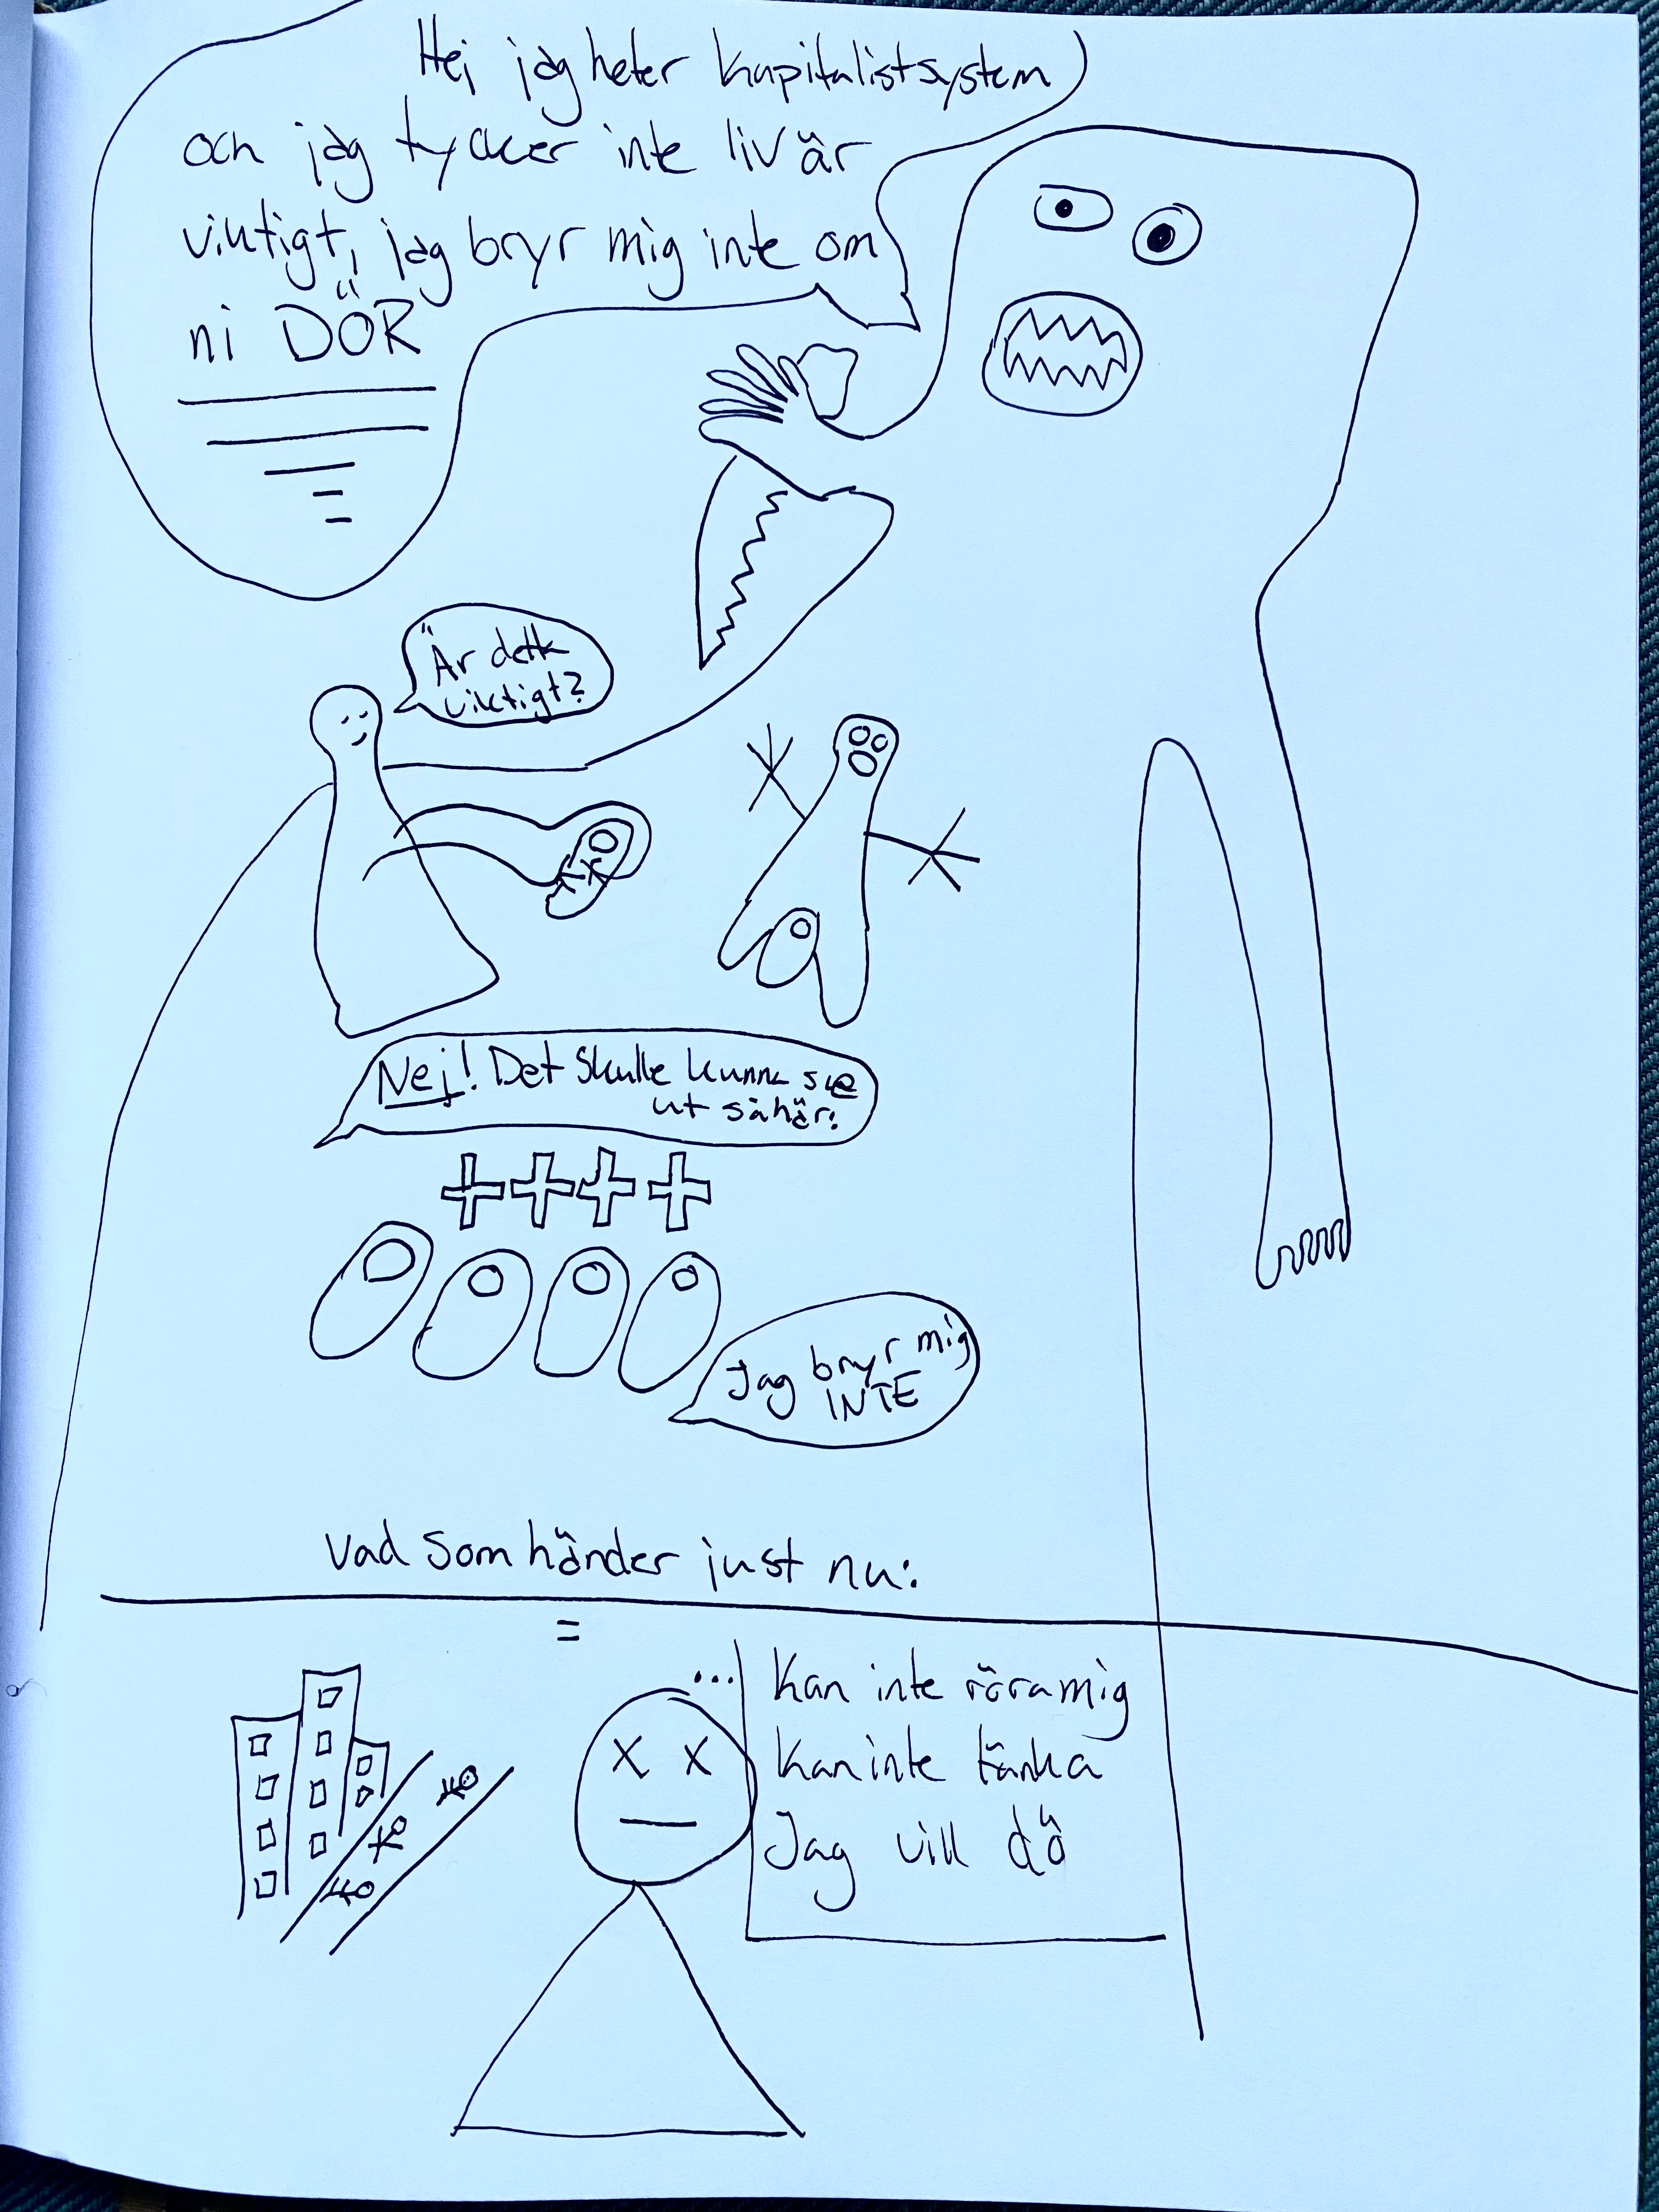 Hej jag heter kapitalistsystem
och jag tycker inte liv är
viktigt, jag bryr mig inte om
ni DÖR
Är detta
viktigt?
Nej! Det skulle kunna se
ut såhär:
Jag bryr mig
INTE
Vad som händer just nu:
=
...
Kan inte röra mig
Kan inte tänka
Jag vill dö